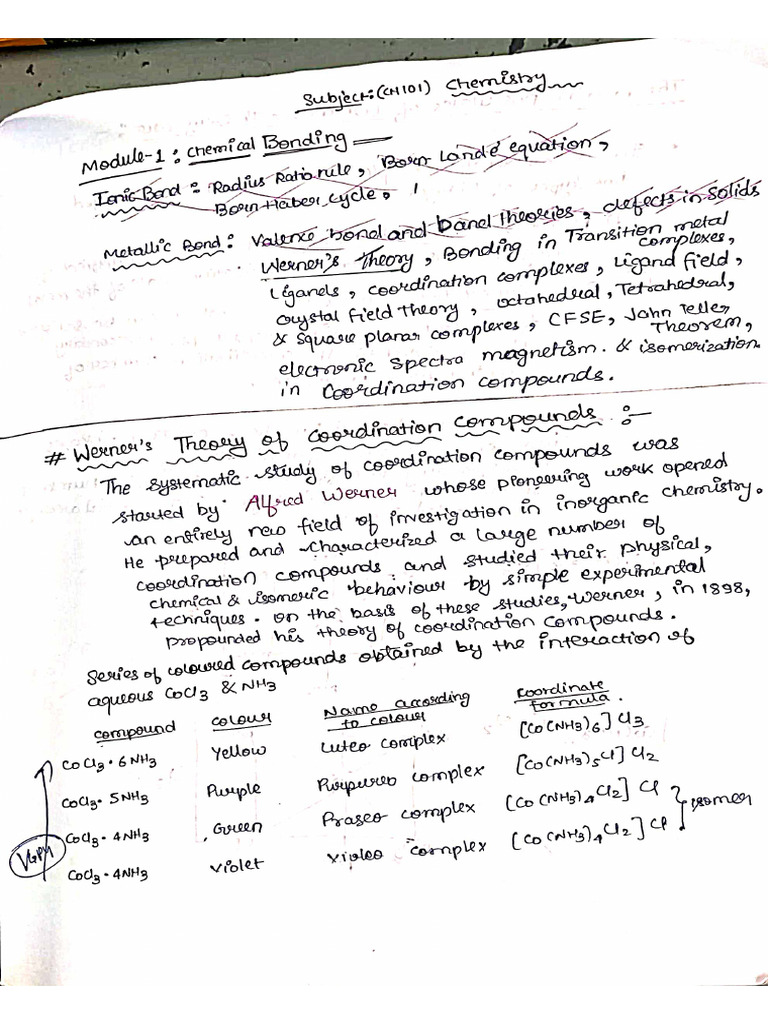 Subject:(CH101) Chemistry
Module-1: Chemical Bonding
Ionic Bond: Radius Ratio rule, Born Landé equation,
Born Haber cycle,
Metallic Bond: Valence bond and band theories, defects in solids
Werner's Theory, Bonding in Transition metal
complexes,
Ligands, coordination complexes, Ligand field,
crystal field Theory, octahedral, Tetrahedral,
& square planar complexes, CFSE, John Teller
Theorem,
electronic spectra magnetism. & isomerization.
in Coordination compounds.
# Werner's Theory of Coordination Compounds :-
The systematic study of coordination compounds was
started by Alfred Werner whose pioneering work opened
an entirely new field of investigation in inorganic chemistry.
He prepared and characterized a large number of
coordination compounds and studied their physical,
chemical & isomeric behaviour by simple experimental
techniques. on the basis of these studies, Werner, in 1898,
propounded his theory of coordination compounds.
Series of coloured compounds obtained by the interaction of
aqueous CoCl3 & NH3
compound colour Name according to colour Coordinate formula.
CoCl3 · 6NH3 Yellow Luteo complex [Co(NH3)6]Cl3
CoCl3 · 5NH3 Purple Purpureo complex [Co(NH3)5Cl]Cl2
CoCl3 · 4NH3 Green Praseo complex [Co(NH3)4Cl2]Cl
CoCl3 · 4NH3 violet violeo complex [Co(NH3)4Cl2]Cl
isomer
VGPY